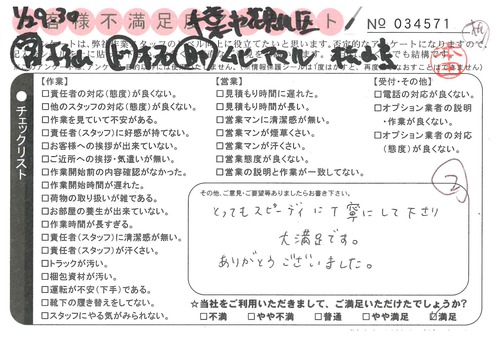 1/29 9:30
客様不満足
Nº 034571
【作業】
□責任者の対応(態度)が良くない。
□他のスタッフの対応(態度)が良くない。
□作業を見ていて不安がある。
□責任者(スタッフ)に好感が持てない。
□お客様への挨拶が出来ていない。
□ご近所への挨拶・気遣いが無い。
□作業開始前の内容確認がなかった。
□作業開始時間が遅れた。
□荷物の取り扱いが雑である。
□お部屋の養生が出来ていない。
□作業時間が長すぎる。
□責任者(スタッフ)に清潔感が無い。
□責任者(スタッフ)が汗くさい。
□トラックが汚い。
□梱包資材が汚い。
□運転が不安(下手)である。
□靴下の履き替えをしてない。
□スタッフにやる気がみられない。
チェックリスト
【営業】
□見積もり時間に遅れた。
□見積もり時間が長い。
□営業マンに清潔感が無い。
□営業マンが煙草くさい。
□営業マンが汗くさい。
□営業態度が良くない。
□営業の説明と作業が一致してない。
【受付・その他】
□電話の対応が良くない。
□オプション業者の説明
・作業が良くない。
□オプション業者の対応
(態度)が良くない。
その他、ご意見・ご要望等ありましたらお書き下さい。
とってもスピーディに丁寧にして下さり
大満足です。
ありがとうございました。
☆当社をご利用いただきまして、ご満足いただけたでしょうか?
□不満 □やや不満 □普通 □やや満足 ☑満足